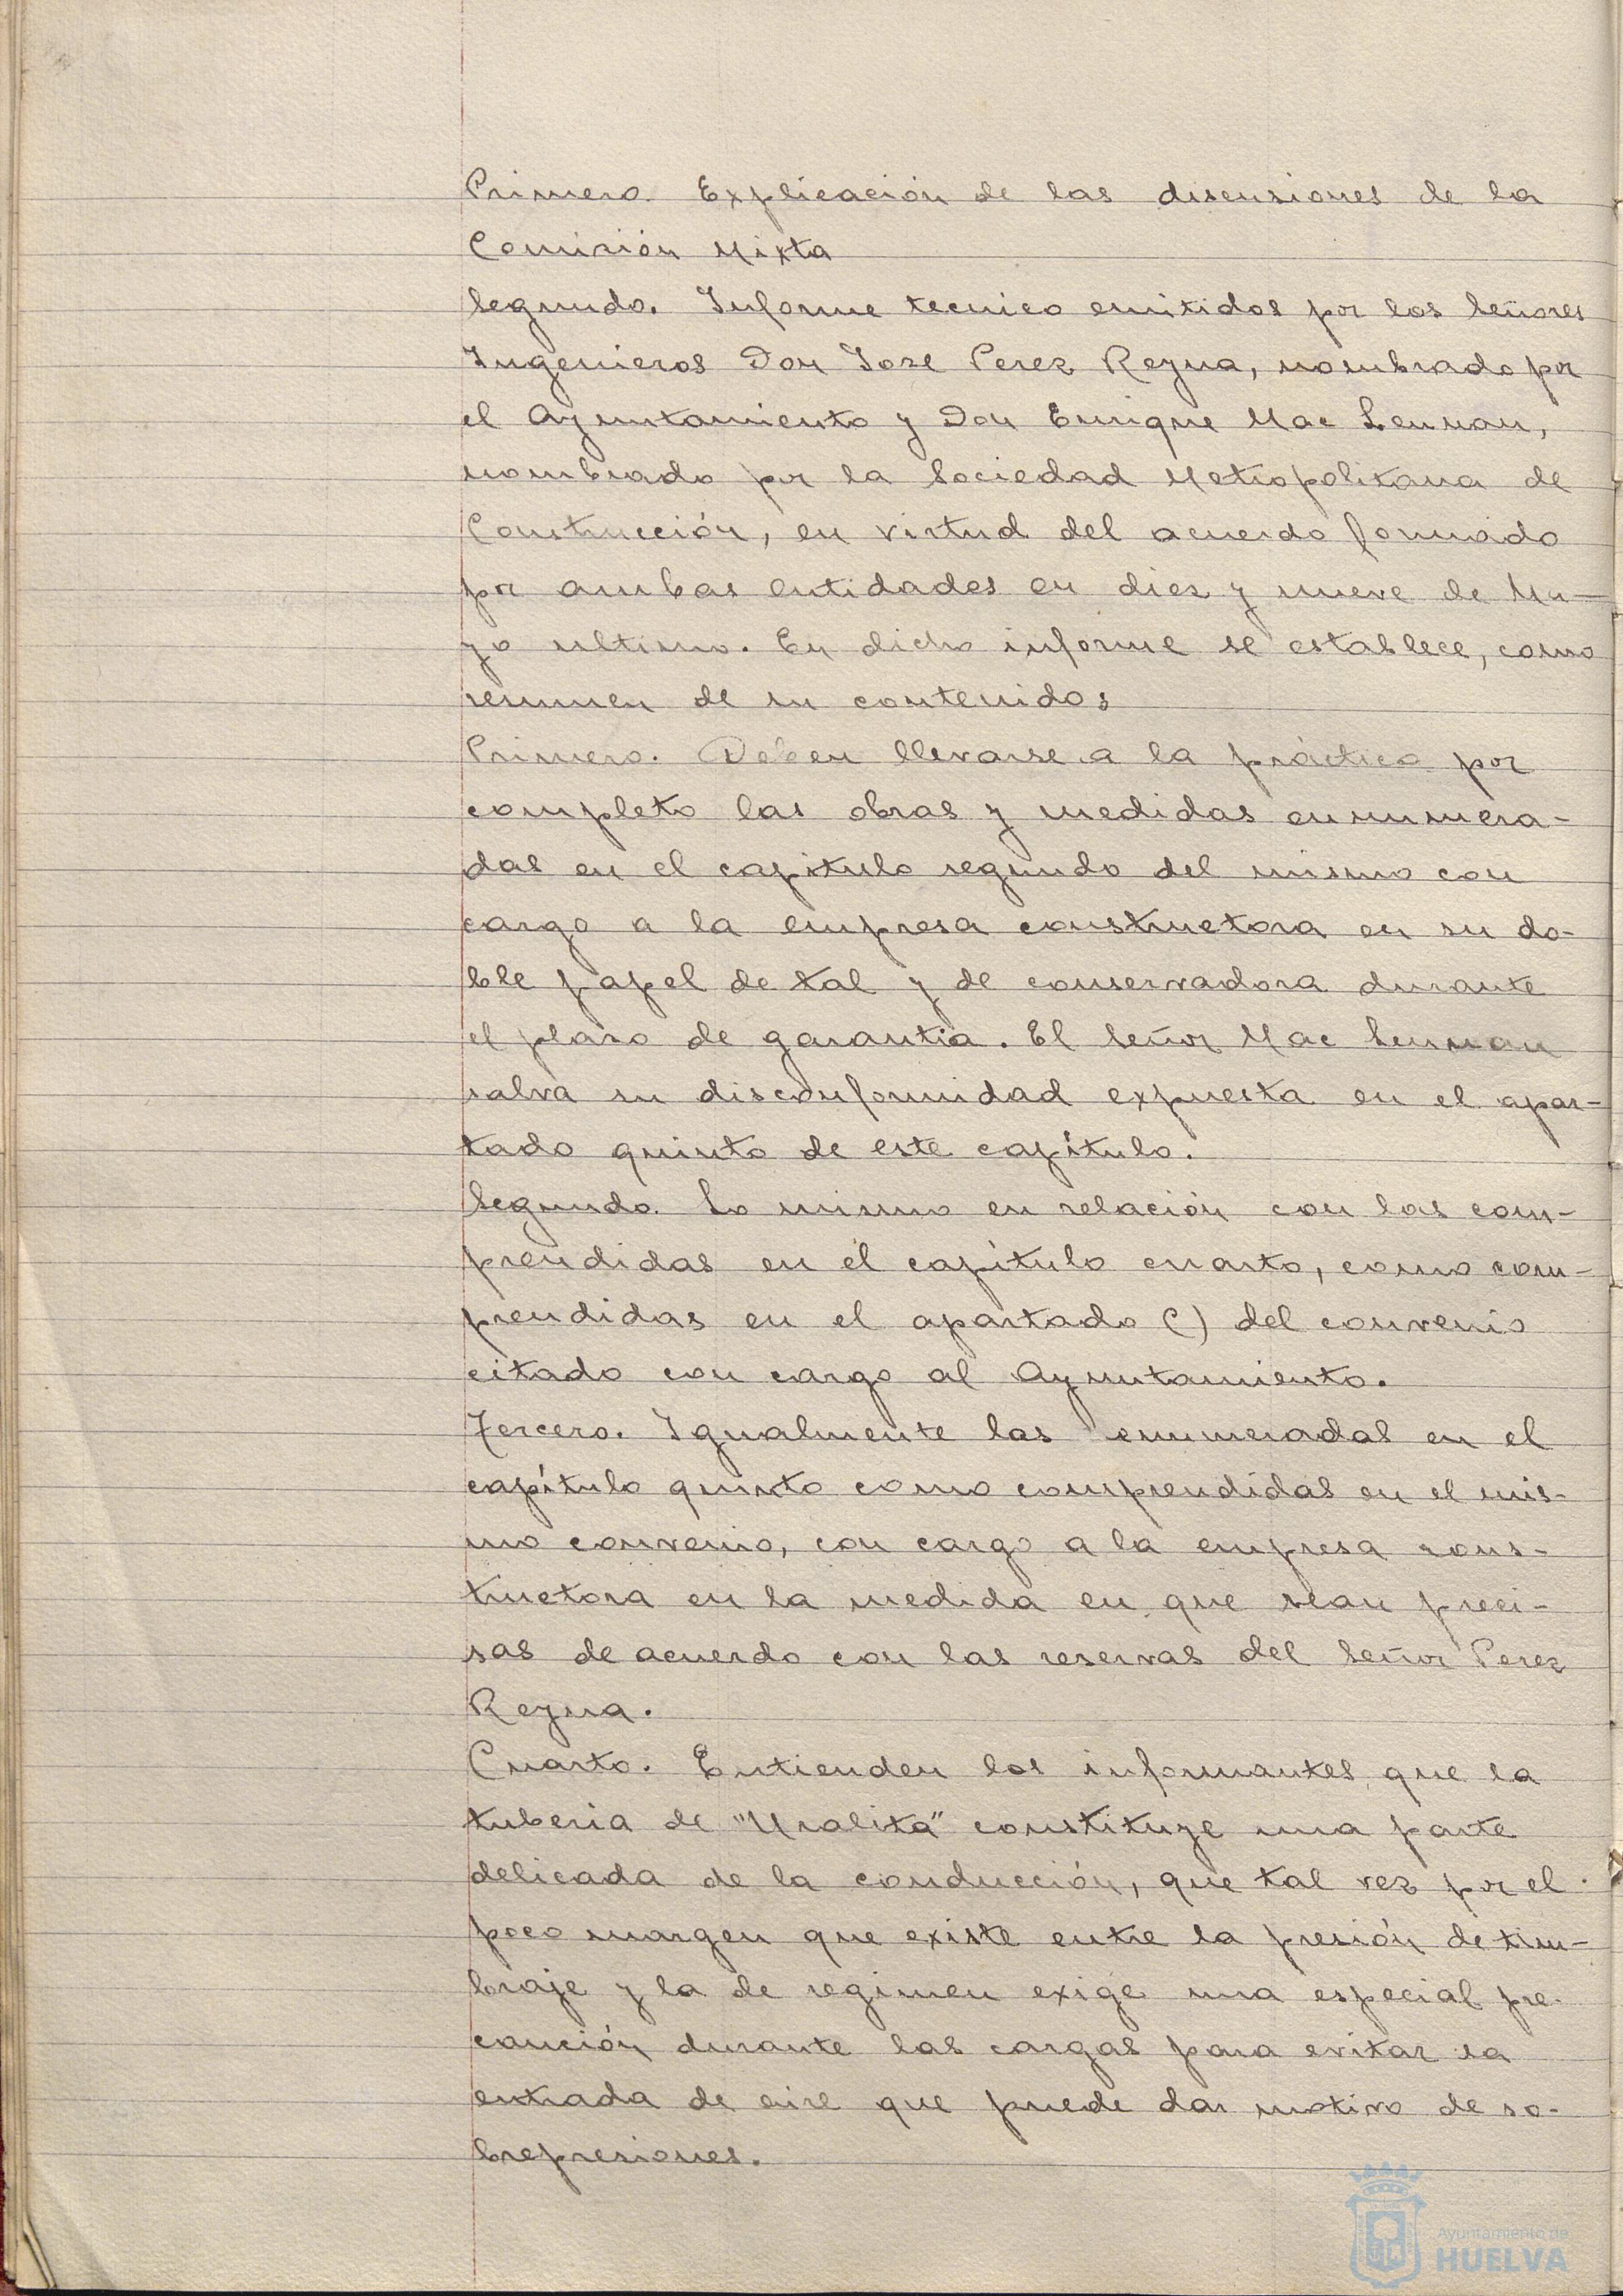 Primero. Explicación de las discusiones de la
Comisión Mixta
Segundo. Informe tecnico emitidos por los Señores
Ingenieros Don Jose Perez Reyna, nombrado por
el Ayuntamiento y Don Enrique Mac Lennan,
nombrado por la Sociedad Metropolitana de
Construcción, en virtud del acuerdo formado
por ambas entidades en diez y nueve de Ma-
yo ultimo. En dicho informe se establece, como
resumen de su contenido:
Primero. Deben llevarse a la práctica por
completo las obras y medidas ennumera-
das en el capitulo segundo del mismo con
cargo a la empresa constructora en su do-
ble papel de tal y de conservadora durante
el plazo de garantia. El Señor Mac Lennan
salva su disconformidad expuesta en el apar-
tado quinto de este capítulo.
Segundo. Lo mismo en relación con las com-
prendidas en el capítulo cuarto, como com-
prendidas en el apartado C) del convenio
citado con cargo al Ayuntamiento.
Tercero. Igualmente las enumeradas en el
capítulo quinto como comprendidas en el mis-
mo convenio, con cargo a la empresa cons-
tructora en la medida en que sean preci-
sas de acuerdo con las reservas del Señor Perez
Reyna.
Cuarto. Entienden los informantes que la
tuberia de "Uralita" constituye una parte
delicada de la conducción, que tal vez por el
poco margen que existe entre la presión de tim-
braje y la de regimen exige una especial pre-
caución durante las cargas para evitar la
entrada de aire que puede dar motivo de so-
brepresiones.
Ayuntamiento de
HUELVA